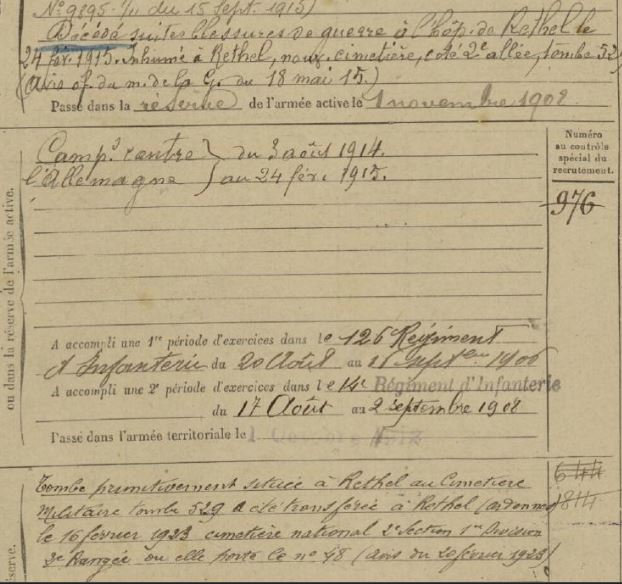 No 9895. 711 du 15 sept. 1915)
Décédé suites blessures de guerre à l'hôp. de Rethel le
24 fév. 1915. Inhumé à Rethel, nouv. cimetière, coté 2e allée, tombe 52
(avis of. du m. de la G. du 18 mai 15.)
Passé dans la réserve de l'armée active le 1 novembre 1902
Numéro
au contrôle
spécial du
recrutement.
Campe contre } du 3 août 1914.
l'Allemagne } au 24 fév. 1915.
976
ou dans la réserve de l'armée active.
A accompli une 1re période d'exercices dans le 126 Régiment
d'Infanterie du 20 Août au Septbre 1906
A accompli une 2e période d'exercices dans le 14e Régiment d'Infanterie
du 17 Août au 2 septembre 1908
Passé dans l'armée territoriale le 1 Octobre 1912
Tombe primitivement située à Rethel au Cimetière
Militaire tombe 529 a été transférée à Rethel (ardennes)
le 16 février 1923 cimetière national 2e Section 1re Division
3e Rangée ou elle porte le no 48 (avis du 20 février 1923)
644
1814
serve.